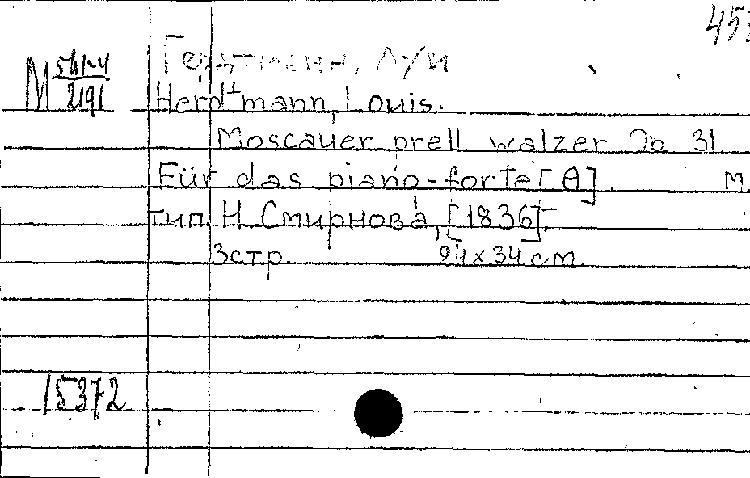 453
М 561-4
2191
Гердтманн, Луи
Herdtmann, Louis.
Moscauer prell walzer Op 31
Für das piano-forte [A]. М.
тип. Н. Смирнова, [1836].
3стр. 24х34 см.
15372